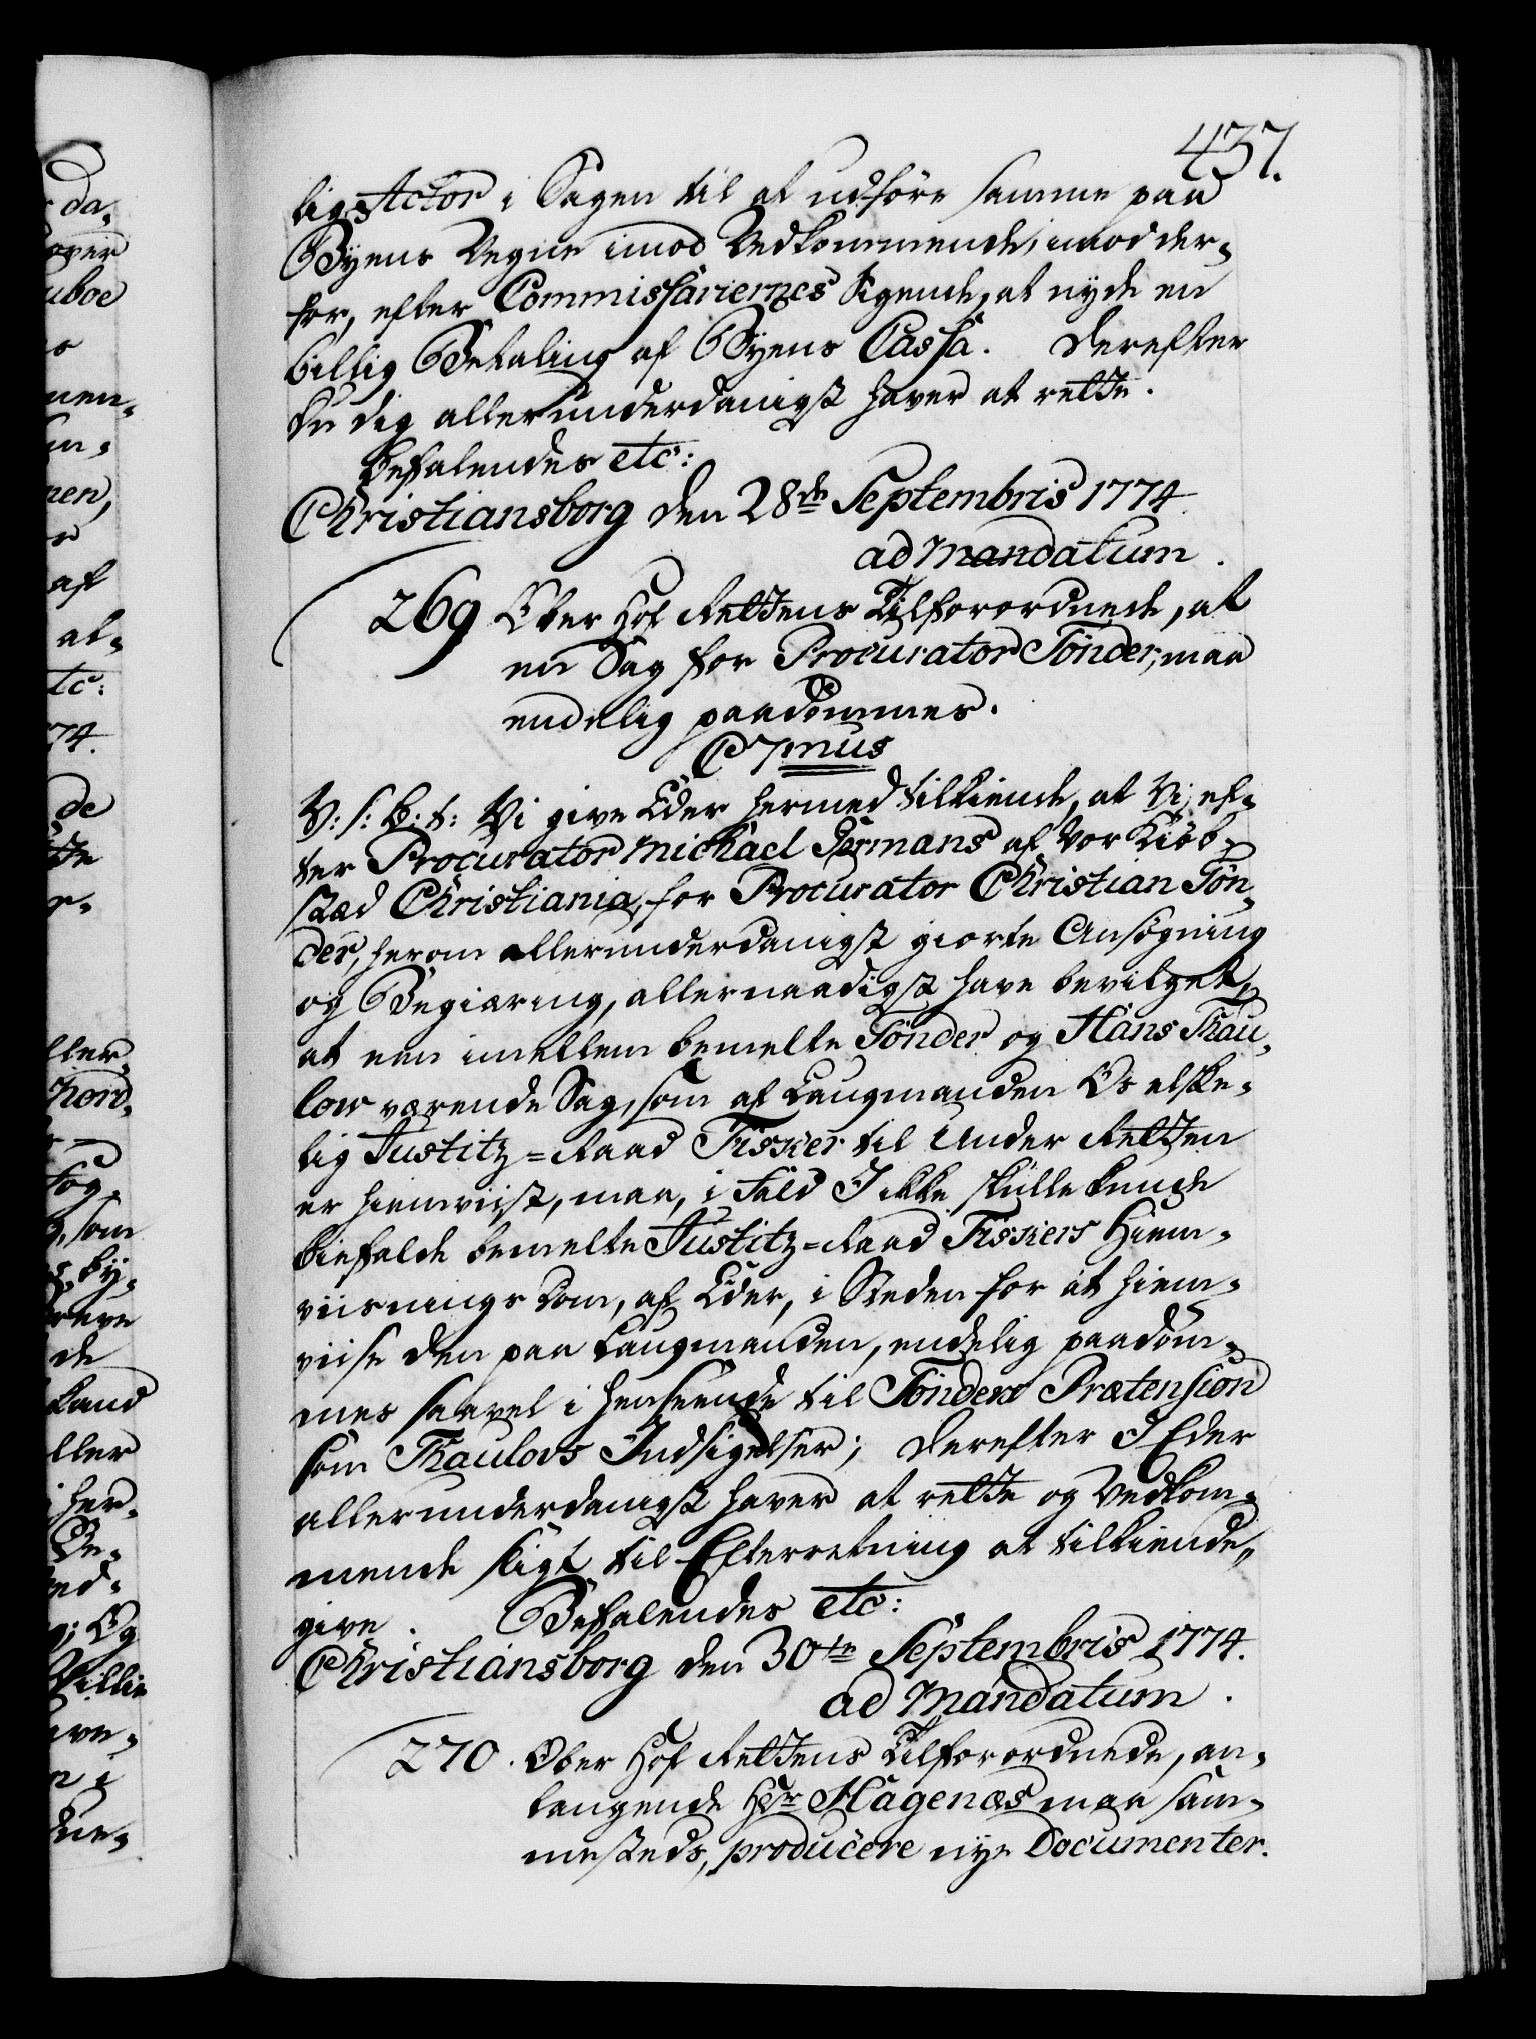 437.
lig Actor i Sagen til at udföre samme paa
Byens Vegne imod Vedkommende, imod der-
for, efter Commissariernes Sigende, at nyde en
billig Betaling af Byens Cassa. Derefter
du dig allerunderdanigst haver at rette.
Befalendes etc:
Christiansborg den 28de Septembris 1774.
ad Mandatum.
269 Ober Hof Rettens Tilforordnede, at
en Sag for Procurator Tönder, maa
endelig paadömmes.
C 7mus
V: S: B: t: Vi give Eder hermed tilkiende, at Vi, ef-
ter Procurator Michael Sørmans af Vor Kiöb-
stæd Christiania, for Procurator Christian Tön-
der, herom allerunderdanigst giorte Ansögning
og Begiæring, allernaadigst have bevilget,
at een imellem bemelte Tönder og Hans Thau-
low værende Sag, som af Laugmanden Os elske-
lig Justitz-Raad Fisker til Under Retten
er hiemviist, maa, i Fald I ikke skulle kunde
biefalde bemelte Justitz-Raad Fiskers Hiem-
viisnings Dom, af Eder, i Steden for at hiem-
viise den paa Laugmanden, endelig paadöm-
mes saavel i Henseende til Tönders Prætension
som Thaulovs Indsigelser; Derefter I Eder
allerunderdanigst haver at rette og Vedkom-
mende sligt til Efterretning at tilkiende-
give. Befalendes etc:
Christiansborg den 30te Septembris 1774.
ad Mandatum.
270. Ober Hof Rettens Tilforordnede, an-
langende Hr Hagenæs maa sam-
mesteds, producere nye Documenter.